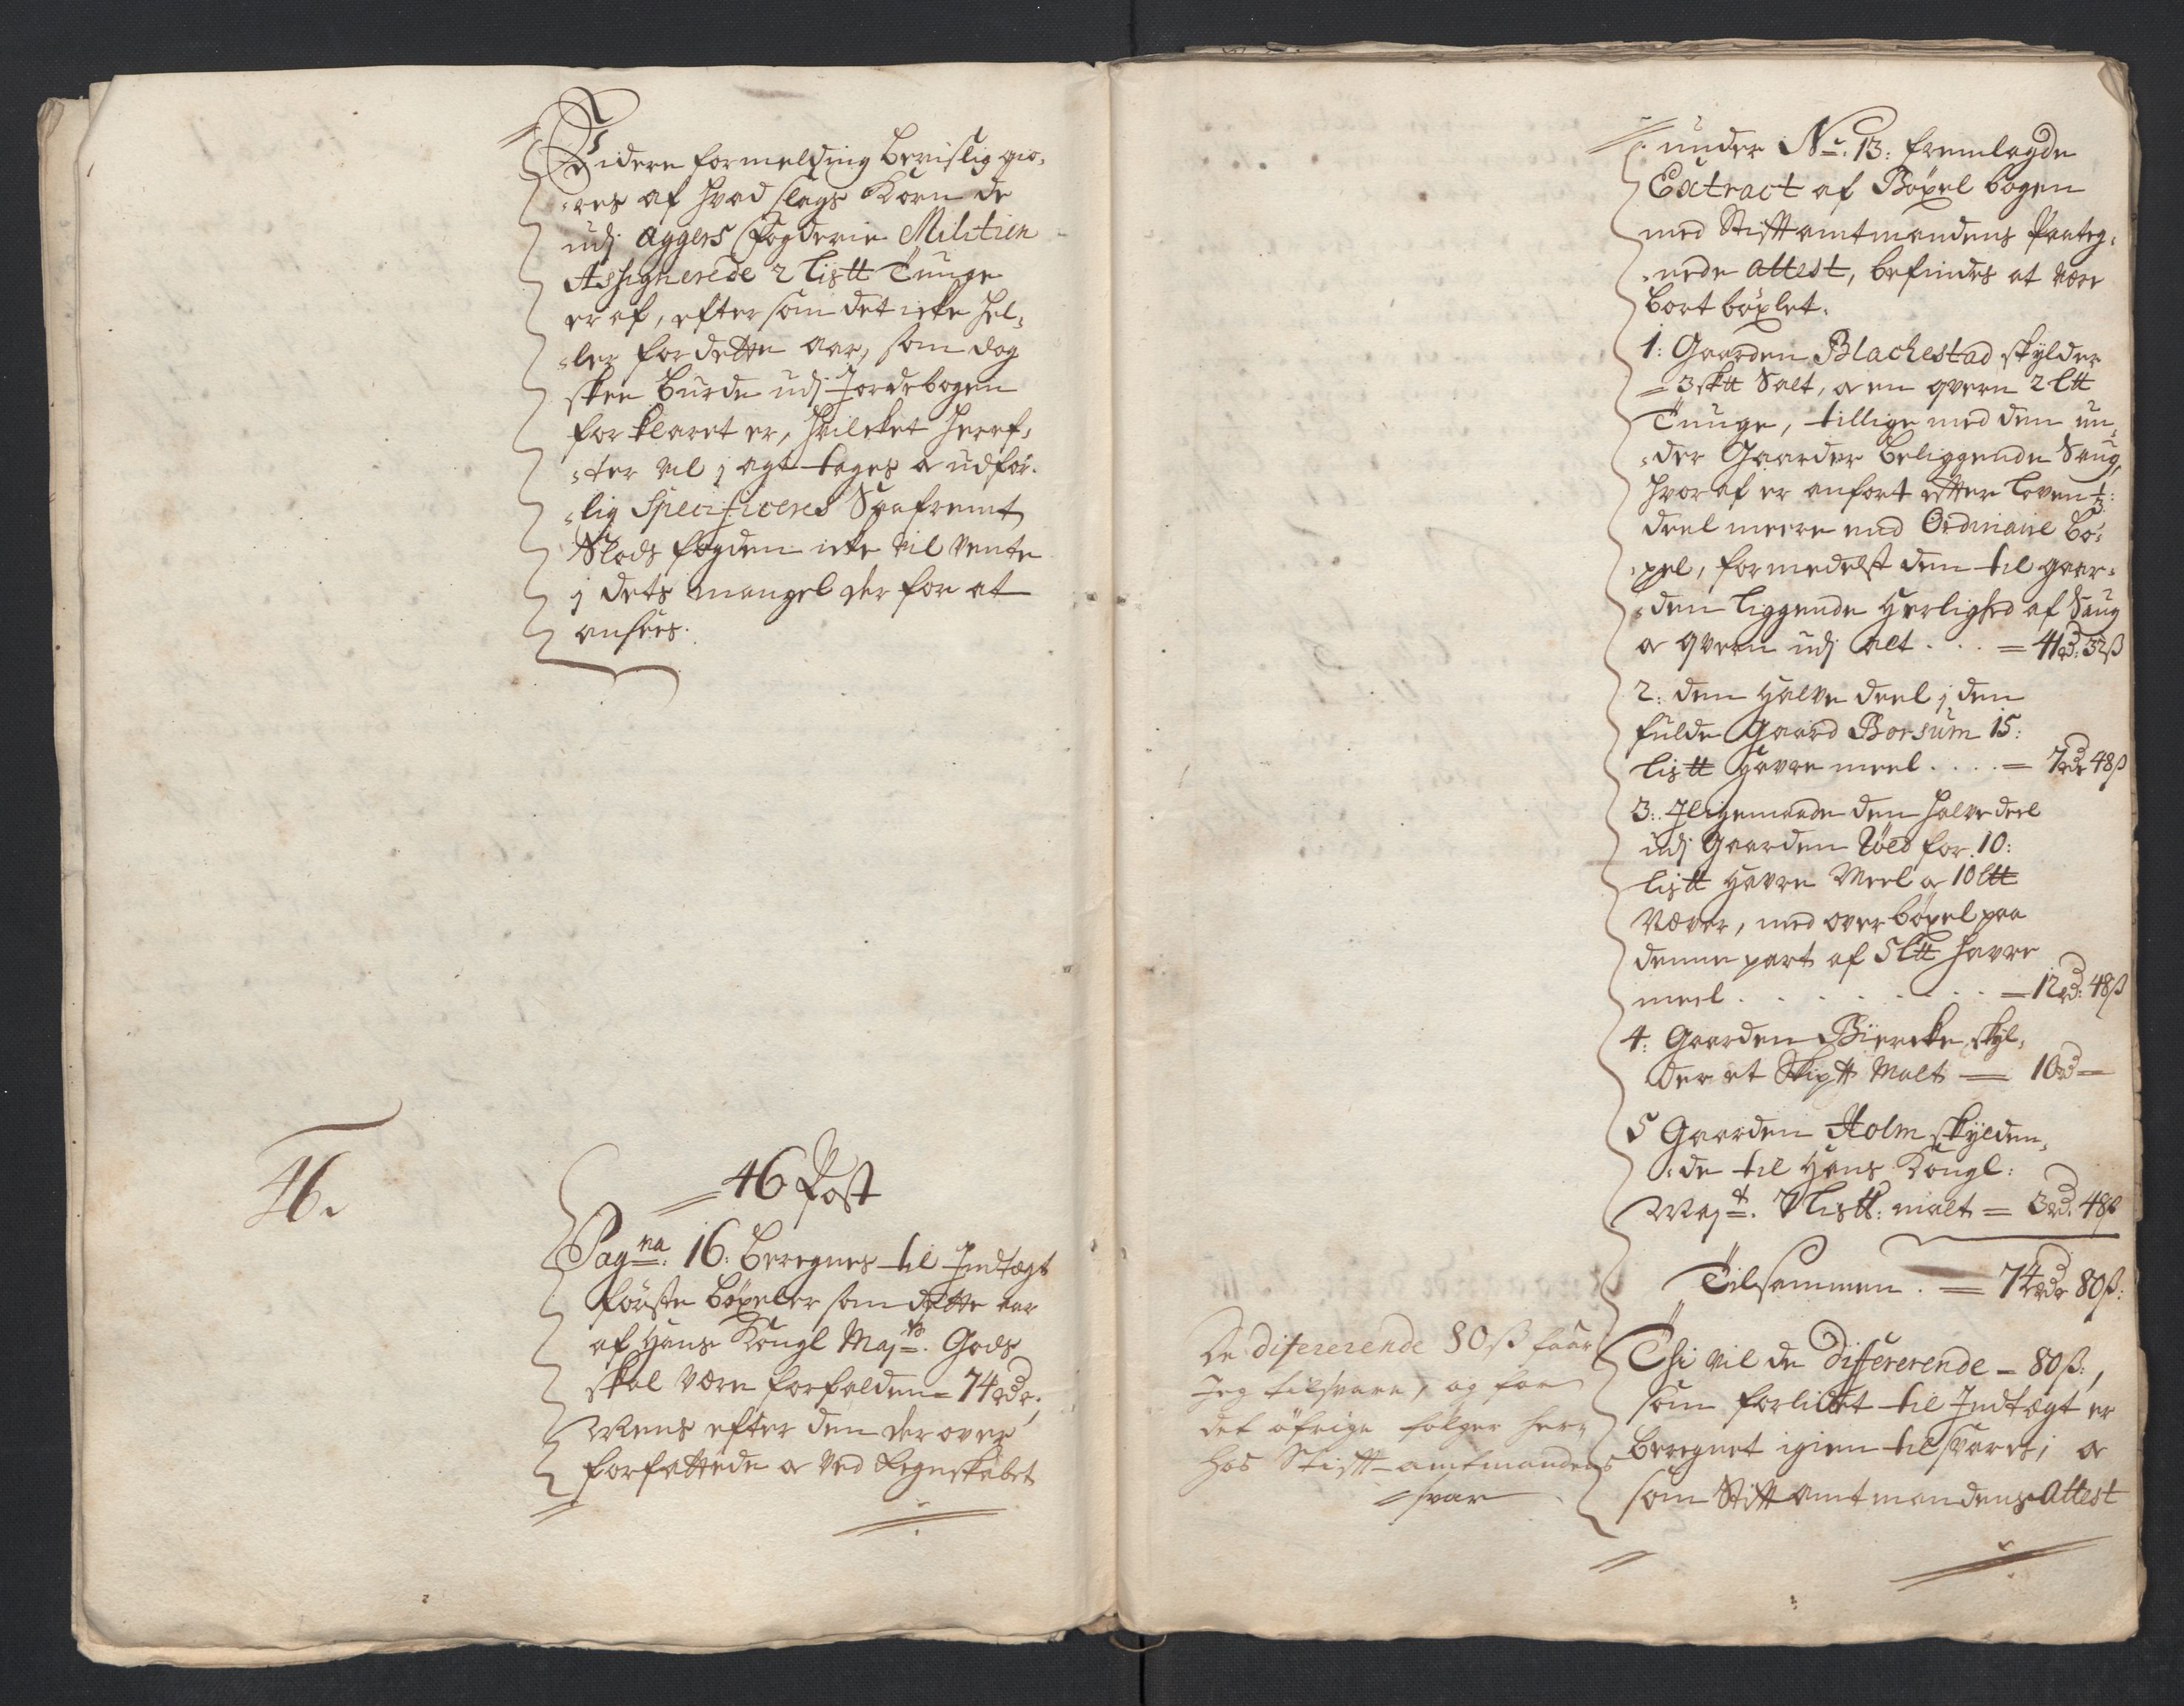 Videre formelding bevislig giø-
res af hvad slags Korn de
udj Aggers Fogderie Militien
Assignerede 2 Lis℔ Tunge
er af, eftersom det icke hel-
ler for dette aar, som dog
skee burde udj Jordebogen
forklaret er, hvilcket heref-
ter vil j agt tages og udfør-
lig Specificeres Saafremt
Slods fogden icke vil vente
j dets mangel der for at
ansees.
46.
46 Post
Pag na: 16: beregnes til Indtægt
første böxeler som dette aar
af Hans Kongl May ts. Gods
skal være forfalden = 74 rdr.
Mens efter den der over
forfattede og ved Regnskabet
under No. 13: fremlagde
Extract af Böxel bogen
med Stiftamtmandens Paateg-
nede attest, befindes at være
bort böxlet.
1: Gaarden Blachestad skylder
3 sk℔ Salt, og en qvern 2 L℔
Tunge, tillige med dem un-
der Gaarder beliggende Saug,
hvoraf er anført efter Loven 1/3:
deel meere end Ordinaire bö-
xel, formedelst dem til gaar-
den liggende Herlighed af Saug
og qvern udj alt . . . = 41 rd: 32 ß
2: den halve deel j den
fulde Gaard Borsum 15:
Lis℔ Havre meel . . . . = 7 rdr 48 ß
3: Iligemaade den halve deel
udj Gaarden Röed for 10:
Lis℔ Havre Meel og 10 L℔
Næver, med over böxel paa
denne part af 5 L℔ Havre
meel . . . . . . . . = 12 rd: 48 ß
4: Gaarden Biercke skyl-
der et Skip℔ Malt = 10 rd =
5 Gaarden Holm skylden-
de til Hans Kongl:
May t. 7 Lis℔: malt = 3 rd. 48 ß
Tilsammen . = 74 rdr 80 ß:
De difererende 80 ß faar
Jeg tilsvare, og for
det öfrige følger her-
hos Stift-amtmandens
svar
Thi vil de differerende = 80 ß:,
som forlidet til Indtægt er
beregnet igien tilsvares; og
som Stiftamtmandens Attest